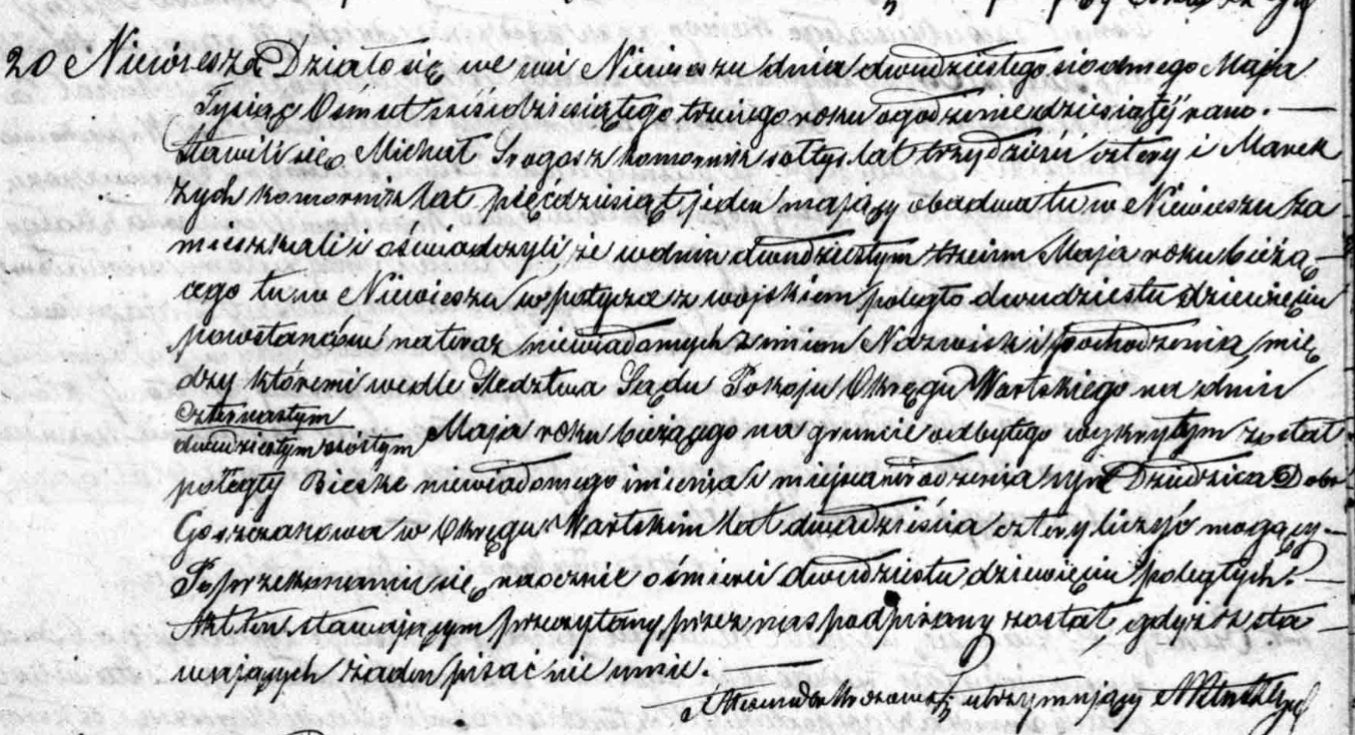 20 Niewiesz Działo się we wsi Niewieszu dnia dwudziestego siodmego Maja
Tysiąc Ośmset sześćdziesiątego trzeciego roku o godzinie dziesiątej rano. —
Stawili się Michał Srogosz komornik sołtys lat trzydzieści cztery i Marek
Zych komornik lat pięćdziesiąt jeden mający obadwa tu w Niewieszu za
mieszkali i oświadczyli, że w dniu dwudziestym trzecim Maja roku bieżą-
cego tu w Niewieszu w potyczce z wojskiem poległo dwudziestu dziewięciu
powstańców na teraz niewiadomych z imion Nazwisk i pochodzenia, mię
dzy któremi wedle Śledztwa Sądu Pokoju Okręgu Wartskiego na dniu
czternastym
dwudziestym szóstym Maja roku bieżącego na gruncie odbytego wykrytym został
poległy Bieske niewiadomego imienia i miejsca urodzenia syn Dziedzica Dobr
Goszczanowa w Okręgu Wartskim lat dwadzieścia cztery liczyć mogący. —
Po przekonaniu się naocznie o śmierci dwudziestu dziewięciu poległych. —
Akt ten stawającym przeczytany, przez nas podpisany został, gdyż ze sta
wających żaden pisać nie umie. —
utrzymujący Akta